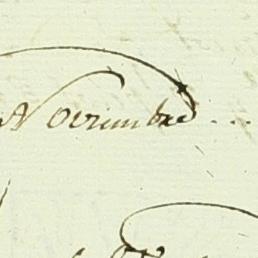 Novembre ...